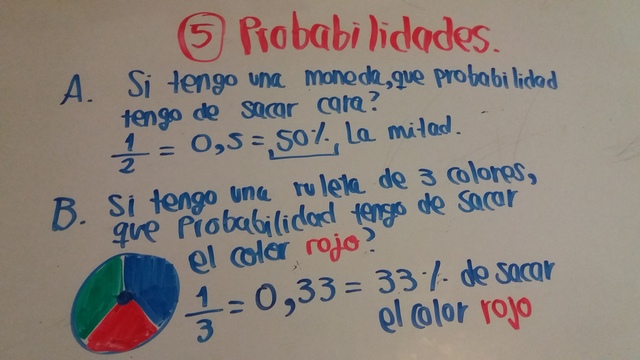 5 Probabilidades.
A. Si tengo una moneda, que probabilidad
tengo de sacar cara?
1/2 = 0,5 = 50%, La mitad.
B. Si tengo una ruleta de 3 colores,
que Probabilidad tengo de sacar
el color rojo?
1/3 = 0,33 = 33% de sacar
el color rojo